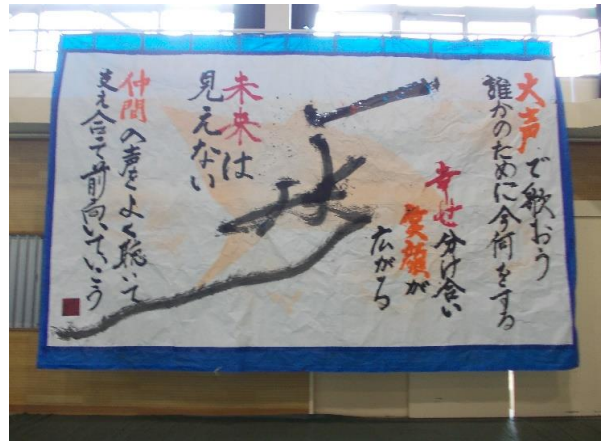 大声で歌おう
誰かのために今何をする
幸せ分け合い
笑顔が
広がる
一歩
未来は
見えない
仲間の声をよく聴いて
支え合って前向いていこう